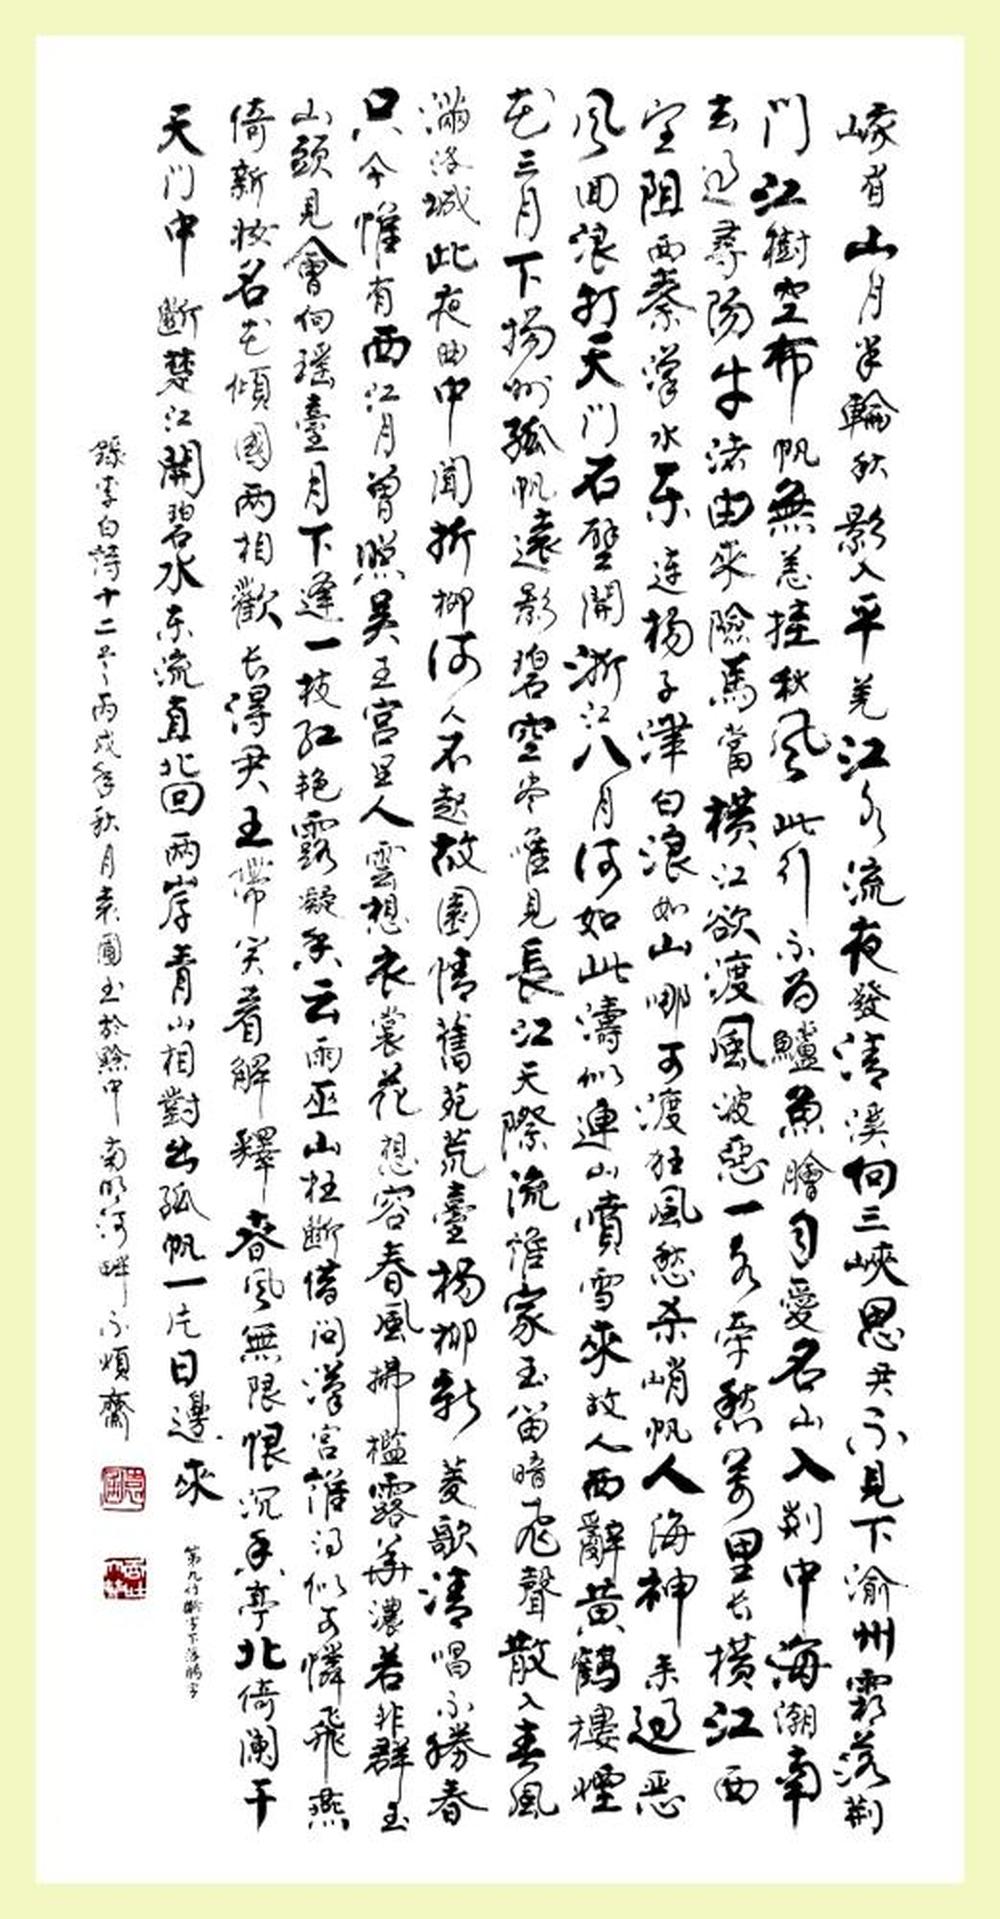 峨眉山月半輪秋影入平羌江水流夜發清溪向三峽思君不見下渝州霜落荆
門江樹空布帆無恙挂秋風此行不為鱸魚膾自愛名山入剡中海潮南
去過尋陽牛渚由來險馬當橫江欲渡風波惡一水牽愁萬里長橫江西
望阻西秦漢水东連楊子津白浪如山哪可渡狂風愁杀峭帆人海神来過恶
風回浪打天門石壁開浙江八月何如此濤似連山噴雪來故人西辭黃鶴樓煙
花三月下揚州孤帆遠影碧空尽唯見長江天際流誰家玉笛暗飛聲散入春風
滿洛城此夜曲中聞折柳何人不起故園情舊苑荒臺楊柳新菱歌清唱不勝春
只今惟有西江月曾照吳王宮里人雲想衣裳花想容春風拂檻露華濃若非群玉
山頭見會向瑤臺月下逢一枝红艳露凝香云雨巫山枉斷借問漢宮誰得似可憐飛燕
倚新妝名花傾國两相歡长得君王帶笑看解釋春風無限恨沉香亭北倚闌干
天門中斷楚江開碧水东流直北回两岸青山相對出孤帆一片日邊來
第九行斷字下落腸字
錄李白詩十二首丙戌年秋月袁國玉於黔中南明河畔不煩齋